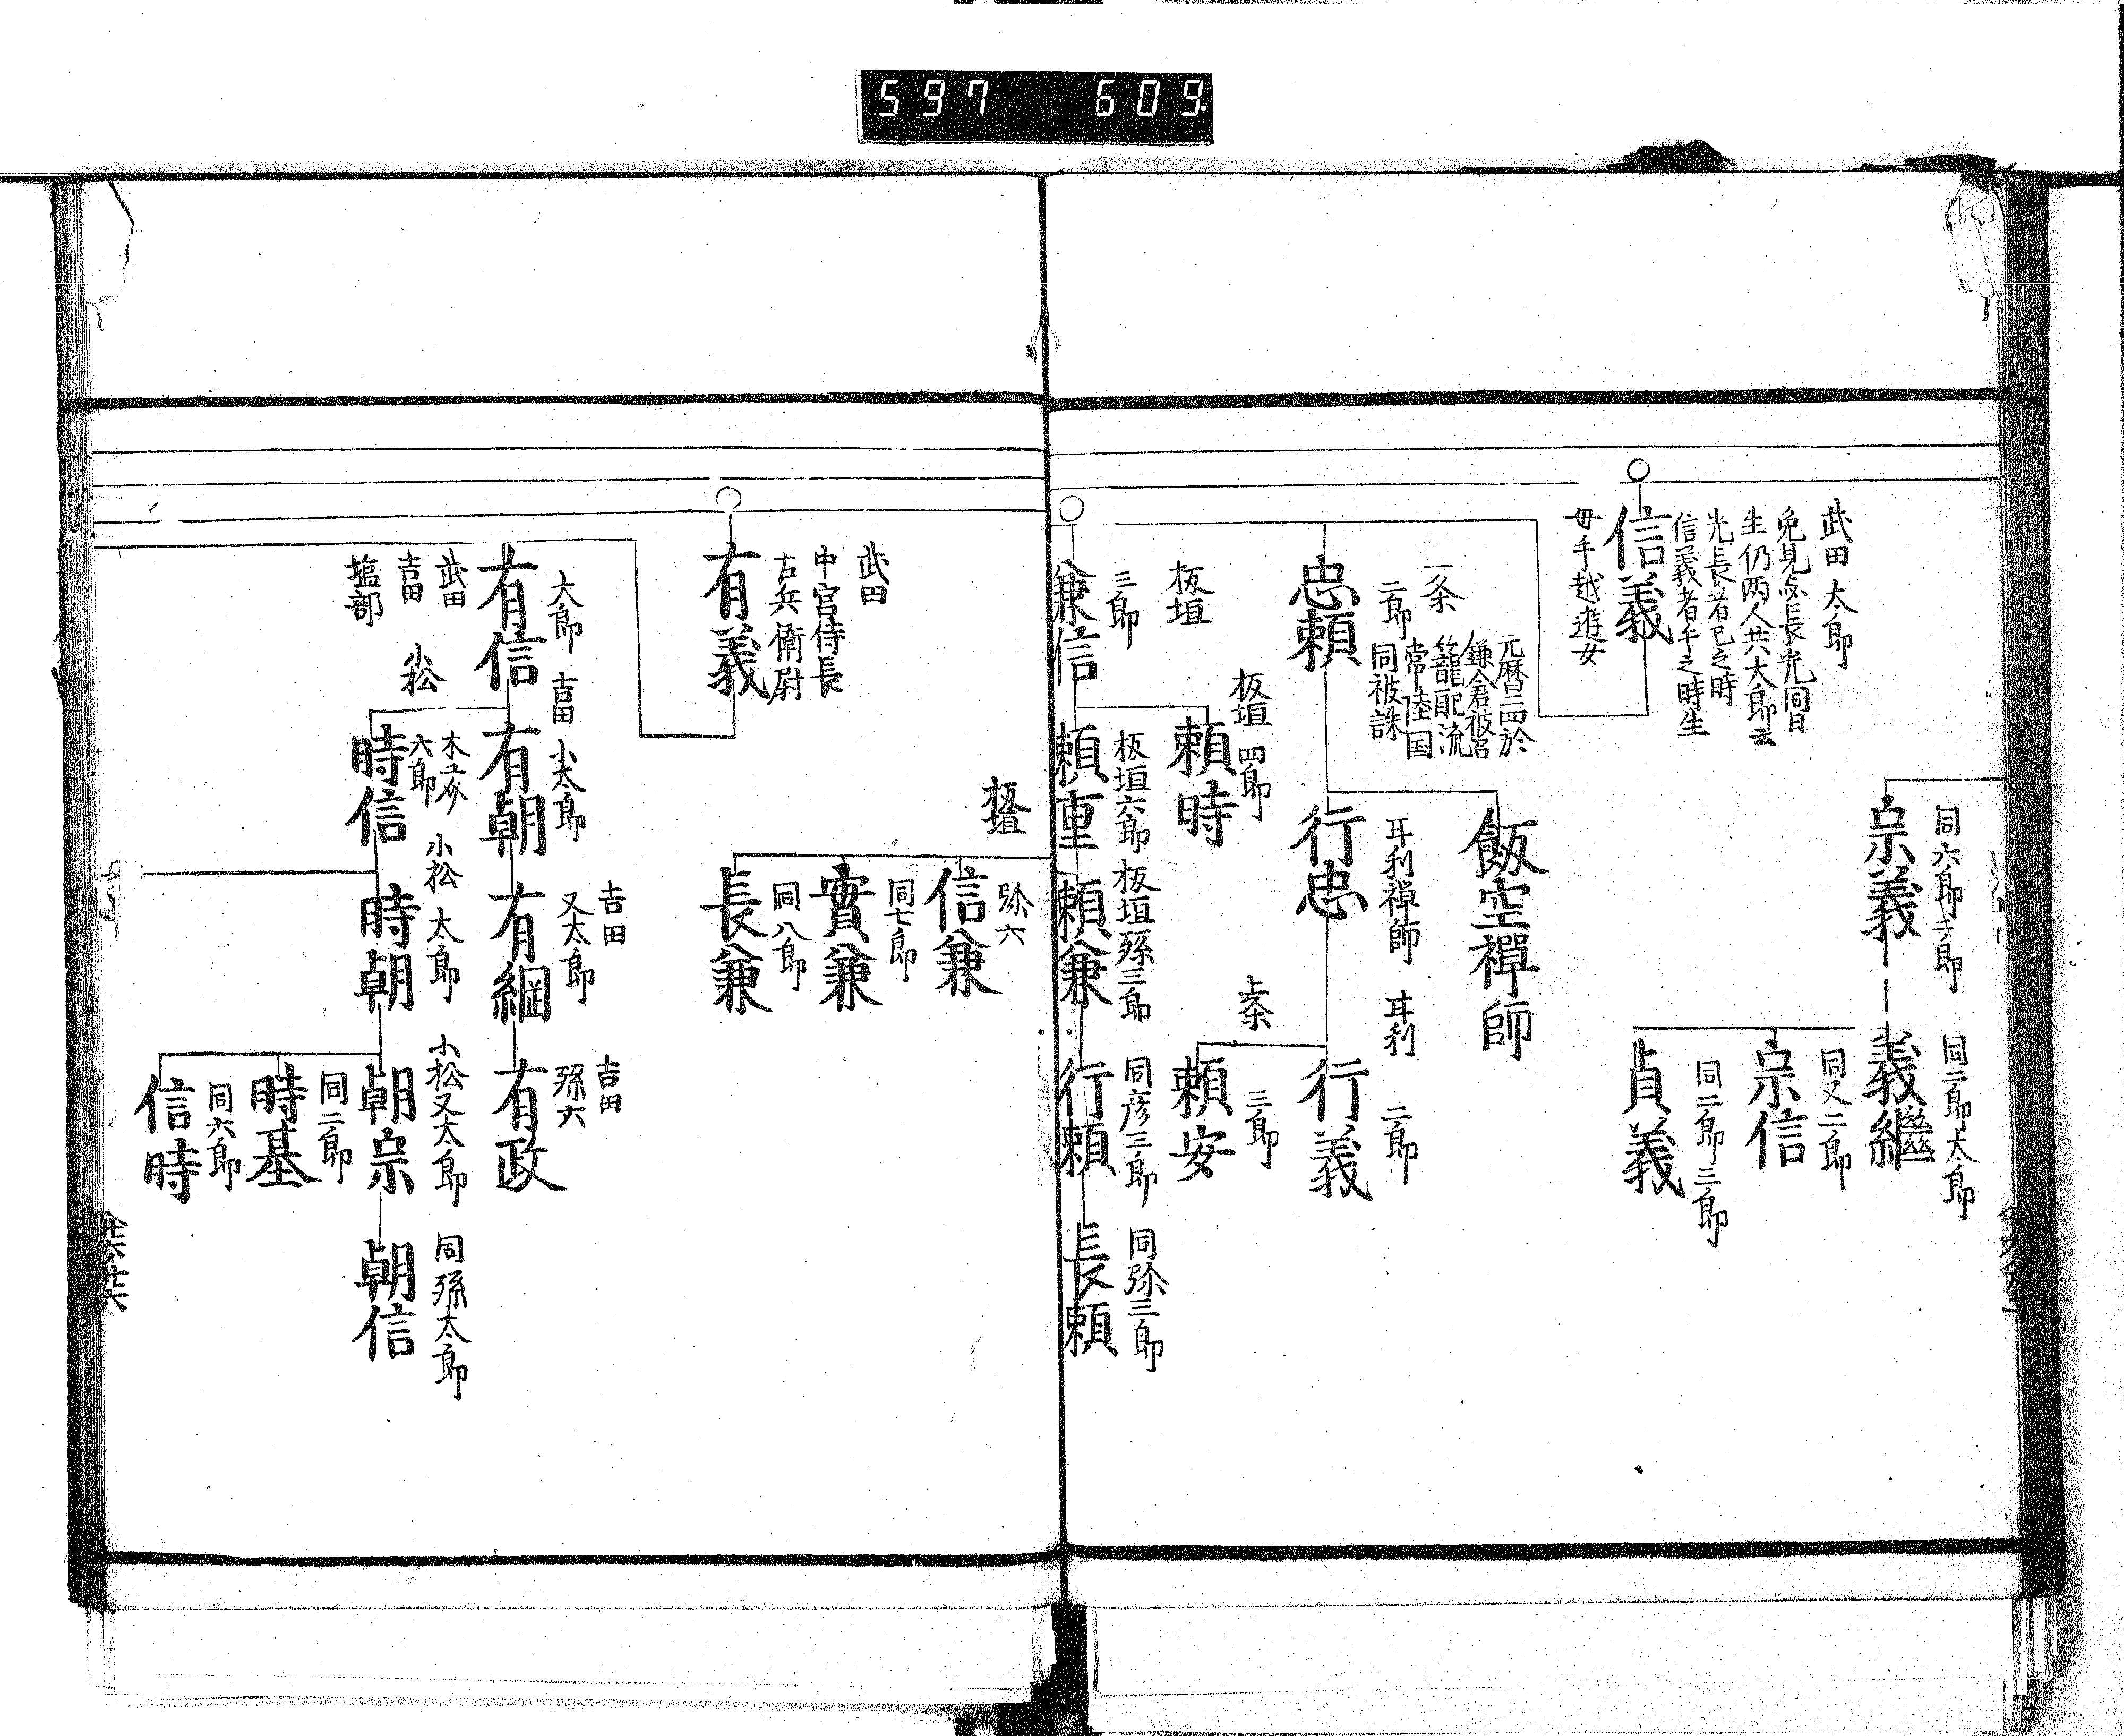 597 609.
同六郎三郎
宗義
同二郎太郎
義継
同又二郎
宗信
同二郎三郎
貞義
武田 太郎
兄見長光同日
生仍两人共太郎云
光長者巳之時
信義者午之時生
信義
母手越遊女
一条
二郎
元暦二四於
鎌倉被召
籠配流
常陸国
同被誅
忠頼
飯空禅師
耳利禅師
行忠
耳利
二郎
行義
上条
三郎
頼安
板垣
三郎
兼信
板垣 四郎
頼時
板垣六郎
頼重
板垣孫三郎
頼兼
同彦三郎
行頼
同弥三郎
長頼
板垣
弥六
信兼
同七郎
實兼
同八郎
長兼
武田
中宮侍長
右兵衛尉
有義
太郎
有信
武田
吉田
塩部
吉田 小太郎
有朝
吉田
又太郎
有綱
吉田
孫六
有政
小松
六郎
時信
小松 太郎
時朝
小松又太郎
朝宗
同孫太郎
朝信
同二郎
時基
同六郎
信時